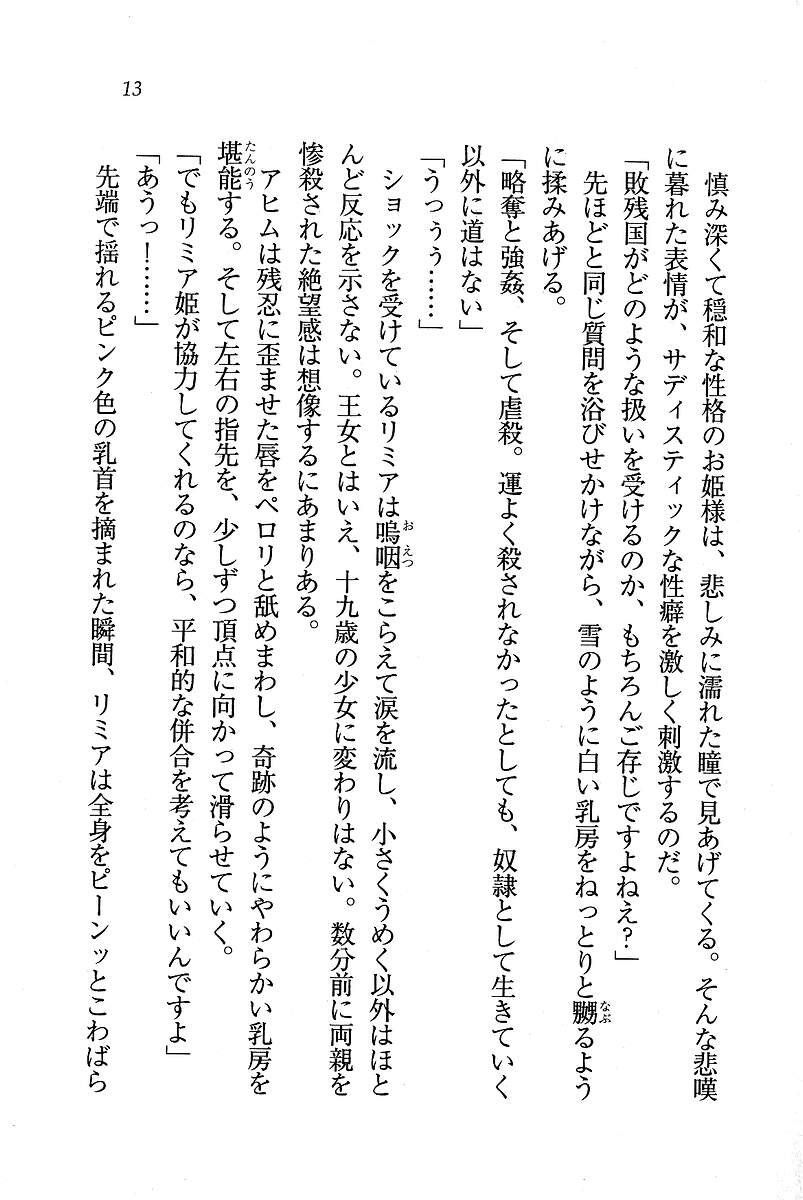 13
慎み深くて穏和な性格のお姫様は、悲しみに濡れた瞳で見あげてくる。そんな悲嘆
に暮れた表情が、サディスティックな性癖を激しく刺激するのだ。
「敗残国がどのような扱いを受けるのか、もちろんご存じですよねえ?」
先ほどと同じ質問を浴びせかけながら、雪のように白い乳房をねっとりと嬲るよう
なぶ
に揉みあげる。
「略奪と強姦、そして虐殺。運よく殺されなかったとしても、奴隷として生きていく
以外に道はない」
「うっぅぅ……」
ショックを受けているリミアは嗚咽をこらえて涙を流し、小さくうめく以外はほと
おえつ
んど反応を示さない。王女とはいえ、十九歳の少女に変わりはない。数分前に両親を
惨殺された絶望感は想像するにあまりある。
アヒムは残忍に歪ませた唇をペロリと舐めまわし、奇跡のようにやわらかい乳房を
堪能する。そして左右の指先を、少しずつ頂点に向かって滑らせていく。
たんのう
「でもリミア姫が協力してくれるのなら、平和的な併合を考えてもいいんですよ」
「あうっ!……」
先端で揺れるピンク色の乳首を摘まれた瞬間、リミアは全身をピーンッとこわばら